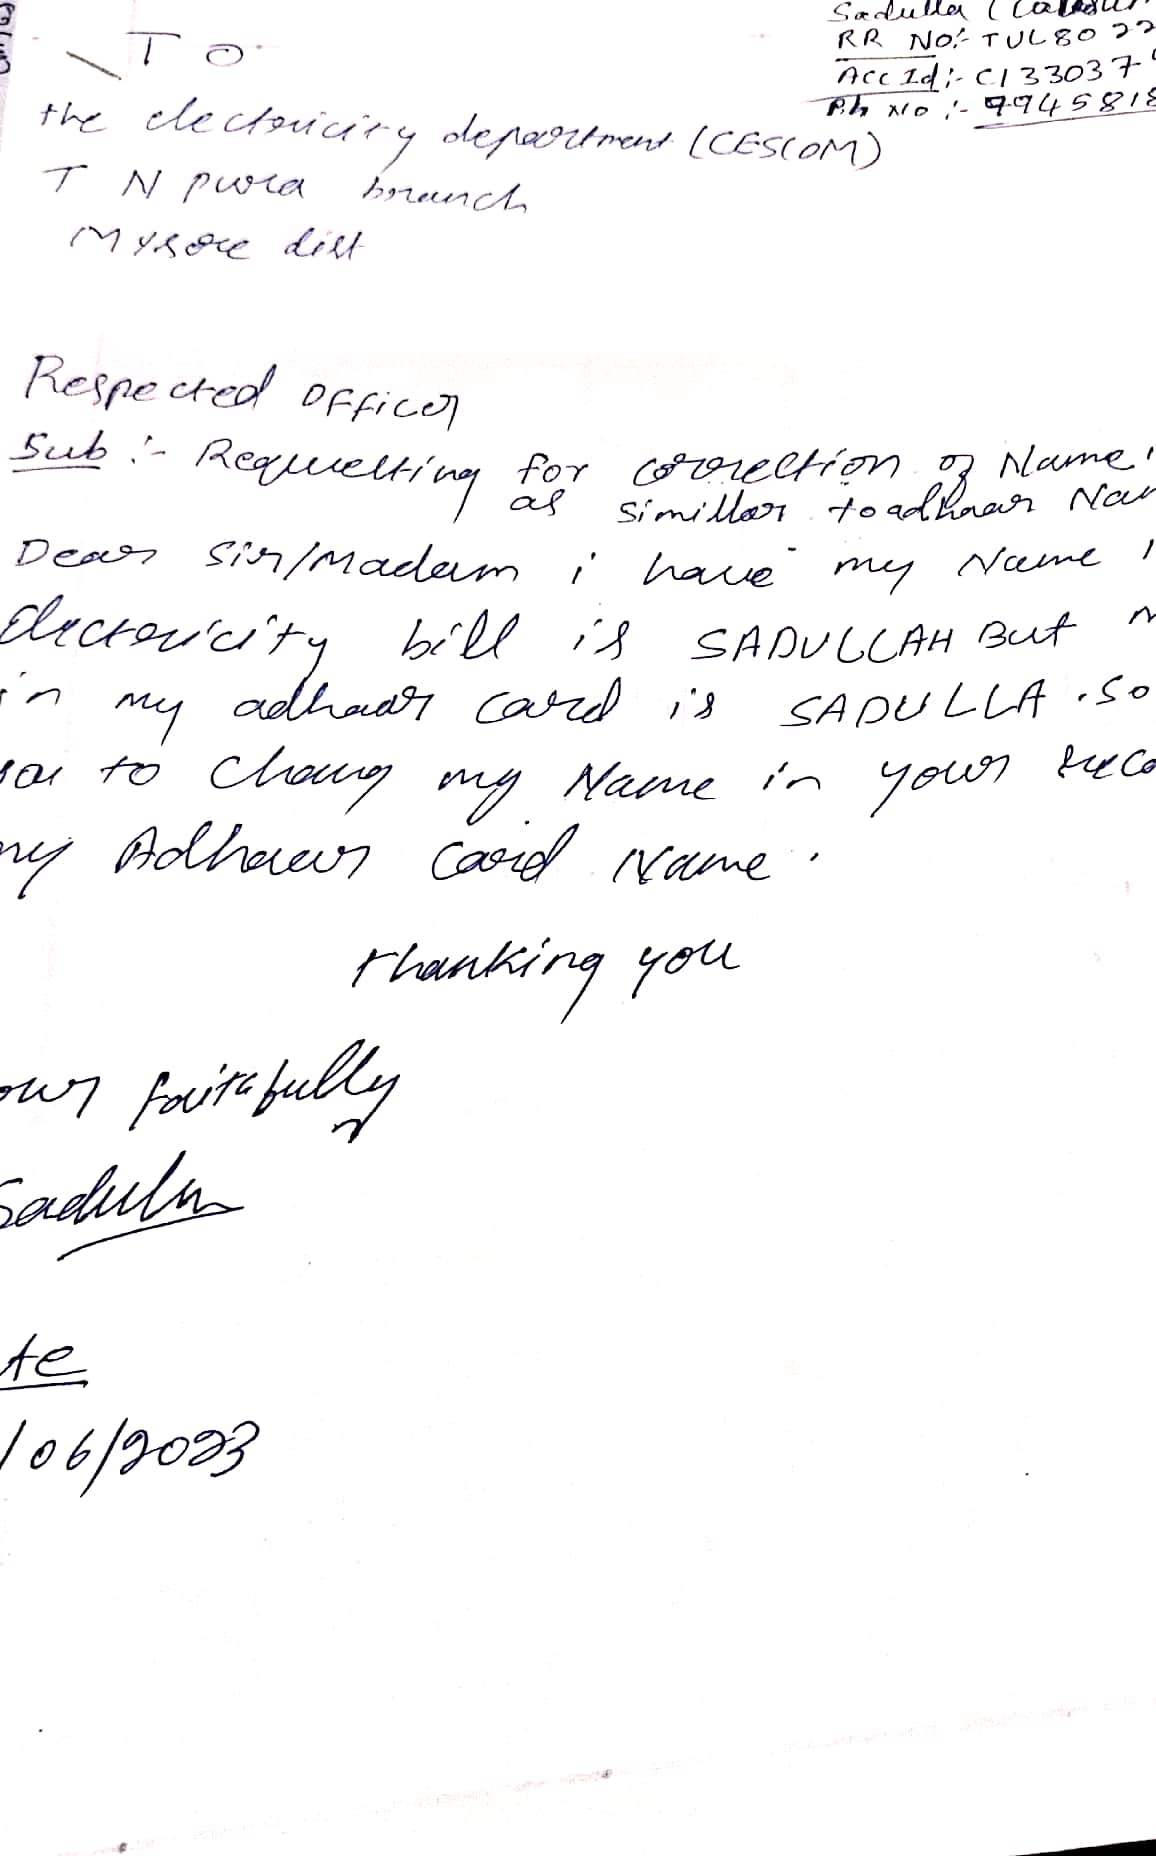 Sadulla
RR NO:- TUL80 22
Acc Id:- C1 33037
Ph No :- 9945818
TO
the electoricity depaortment (CESCOM)
T N pura branch
Mysore dist
Respected officer
Sub :- Requesting for correction of Name
as similler to adhaar Nam
Dear Sir/Madam i have my Name
Electoricity bill is SADULLAH But
in my adhaar card is SADULLA . So
to chang my Name in your reco
my Adhaar card Name .
thanking you
our faithfully
Sadulla
te
/06/2023